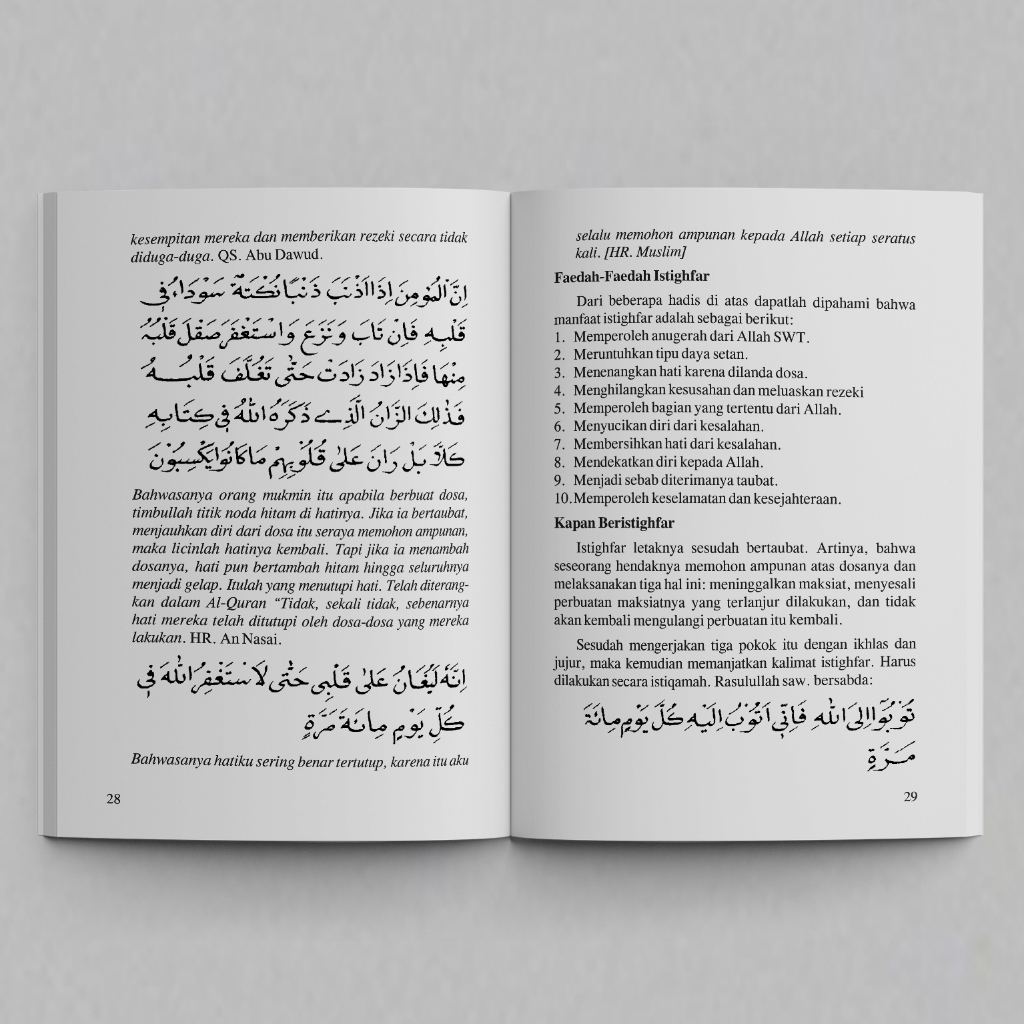 kesempitan mereka dan memberikan rezeki secara tidak
diduga-duga. QS. Abu Dawud.
اِنَّ الْمُؤْمِنَ اِذَا اَذْنَبَ ذَنْبًا نُكْتَةٌ سَوْدَاءُ فِى
قَلْبِهِ فَاِنْ تَابَ وَنَزَعَ وَاسْتَغْفَرَ صَقَلَ قَلْبُهُ
مِنْهَا فَاِذَا زَادَ زَادَتْ حَتّٰى تَغُلَّفَ قَلْبُهُ
فَذٰلِكَ الرَّانُ الَّذِى ذَكَرَهُ اللّٰهُ فِى كِتَابِهِ
كَلَّا بَلْ رَانَ عَلٰى قُلُوْبِهِمْ مَا كَانُوْا يَكْسِبُوْنَ
Bahwasanya orang mukmin itu apabila berbuat dosa,
timbullah titik noda hitam di hatinya. Jika ia bertaubat,
menjauhkan diri dari dosa itu seraya memohon ampunan,
maka licinlah hatinya kembali. Tapi jika ia menambah
dosanya, hati pun bertambah hitam hingga seluruhnya
menjadi gelap. Itulah yang menutupi hati. Telah diterang-
kan dalam Al-Quran “Tidak, sekali tidak, sebenarnya
hati mereka telah ditutupi oleh dosa-dosa yang mereka
lakukan. HR. An Nasai.
اِنَّهُ لَيُغَانُ عَلٰى قَلْبِى حَتّٰى لَاسْتَغْفِرُ اللّٰهَ فِى
كُلِّ يَوْمٍ مِائَةَ مَرَّةٍ
Bahwasanya hatiku sering benar tertutup, karena itu aku
28
selalu memohon ampunan kepada Allah setiap seratus
kali. [HR. Muslim]
Faedah-Faedah Istighfar
Dari beberapa hadis di atas dapatlah dipahami bahwa
manfaat istighfar adalah sebagai berikut:
1. Memperoleh anugerah dari Allah SWT.
2. Meruntuhkan tipu daya setan.
3. Menenangkan hati karena dilanda dosa.
4. Menghilangkan kesusahan dan meluaskan rezeki
5. Memperoleh bagian yang tertentu dari Allah.
6. Menyucikan diri dari kesalahan.
7. Membersihkan hati dari kesalahan.
8. Mendekatkan diri kepada Allah.
9. Menjadi sebab diterimanya taubat.
10. Memperoleh keselamatan dan kesejahteraan.
Kapan Beristighfar
Istighfar letaknya sesudah bertaubat. Artinya, bahwa
seseorang hendaknya memohon ampunan atas dosanya dan
melaksanakan tiga hal ini: meninggalkan maksiat, menyesali
perbuatan maksiatnya yang terlanjur dilakukan, dan tidak
akan kembali mengulangi perbuatan itu kembali.
Sesudah mengerjakan tiga pokok itu dengan ikhlas dan
jujur, maka kemudian memanjatkan kalimat istighfar. Harus
dilakukan secara istiqamah. Rasulullah saw. bersabda:
تُوْبُوْا اِلَى اللّٰهِ فَاِنِّى اَتُوْبُ اِلَيْهِ كُلَّ يَوْمٍ مِائَةَ
مَرَّةٍ
29